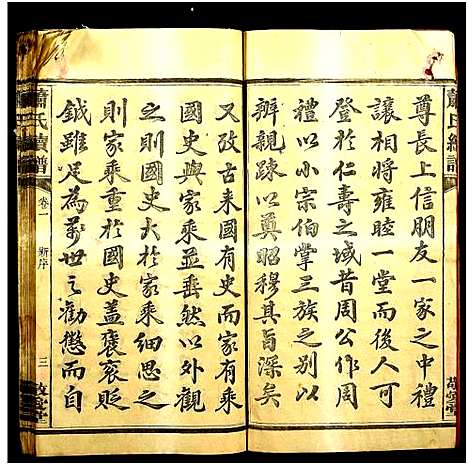 尊長上信朋友一家之中禮
讓相將雍睦一堂而後人可
登於仁壽之域昔周公作周
禮以小宗伯掌三族之别以
辨親踈以奠昭穆其旨深矣
又攷古来國有史而家有乘
國史與家乘並垂然以外觀
之則國史大於家乘細思之
則家乘重於國史盖褒衮貶
鉞雖足為萬世之勸懲而自
蕭氏續譜
卷一
新序
三